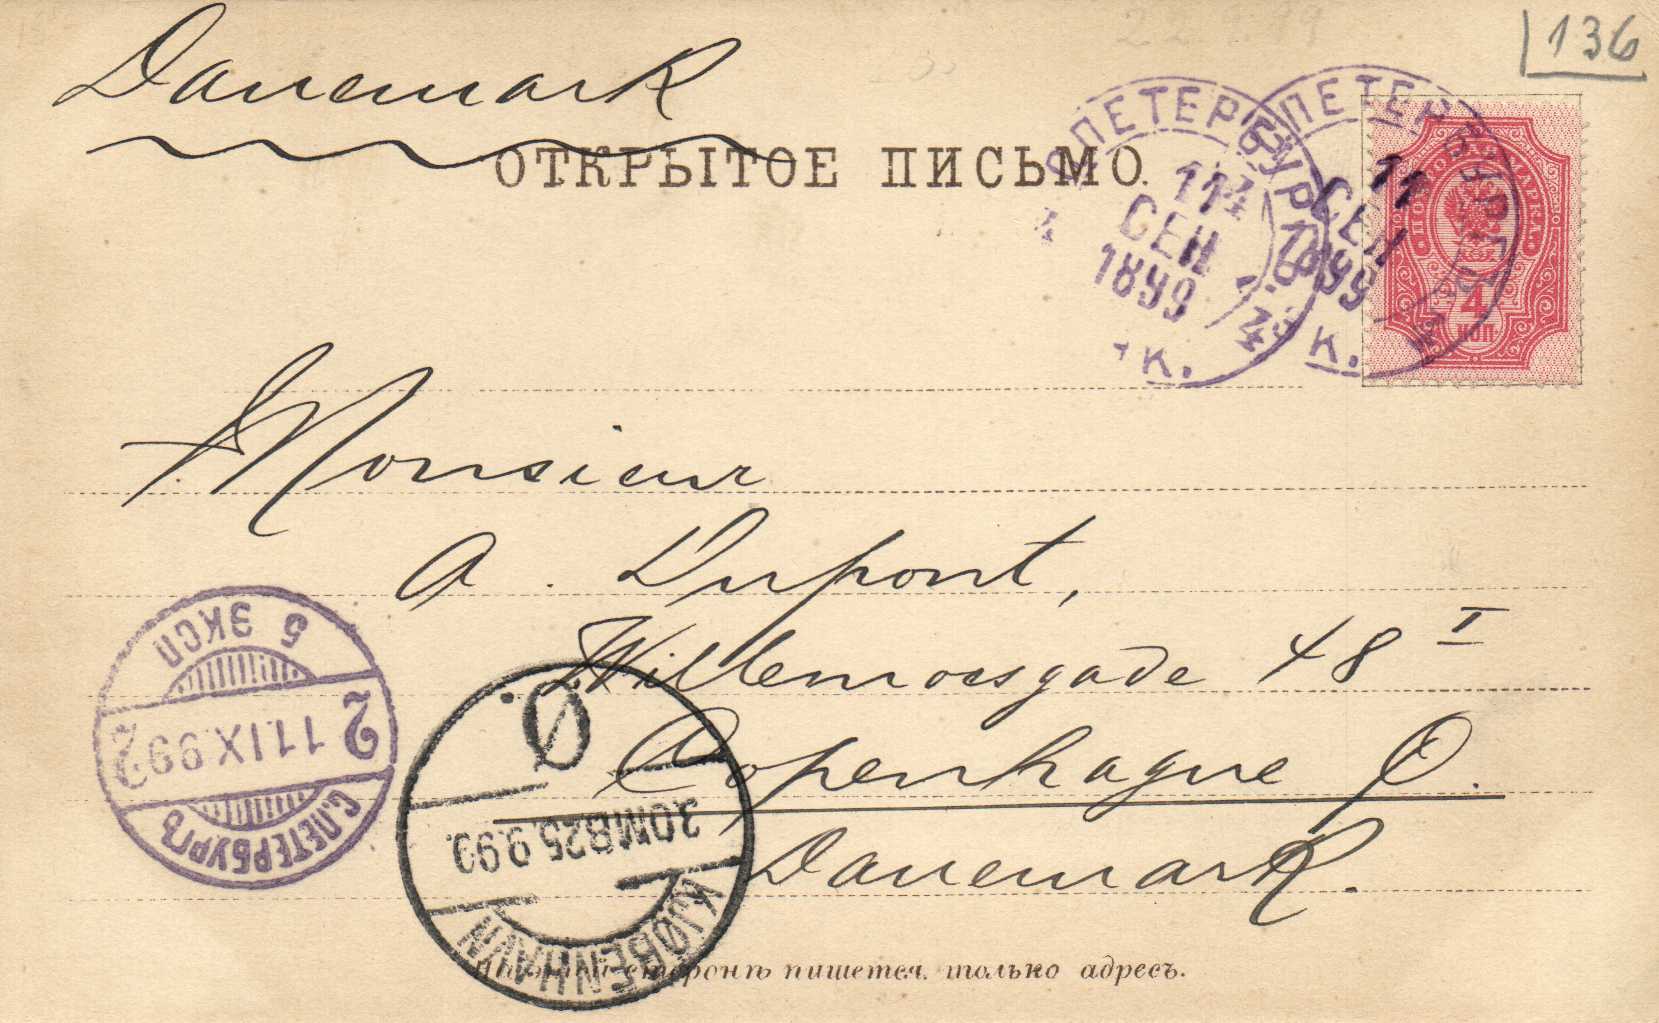 136
Danemark
ОТКРЫТОЕ ПИСЬМО.
ПЕТЕРБУРГ
11
СЕН
1899
К.
ПЕТЕРБУРГ
11
СЕН
1899
К.
ПОЧТОВАЯ МАРКА
4
КОП
Monsieur
A. Dupont,
Willemoesgade 48 I
Copenhague Ø.
Danemark.
5 ЭКСП
2 11.IX.99 2
С.ПЕТЕРБУРГЪ
Ø.
3.OMB 25.9.99.
KJØBENHAVN
сторонѣ пишется только адресъ.